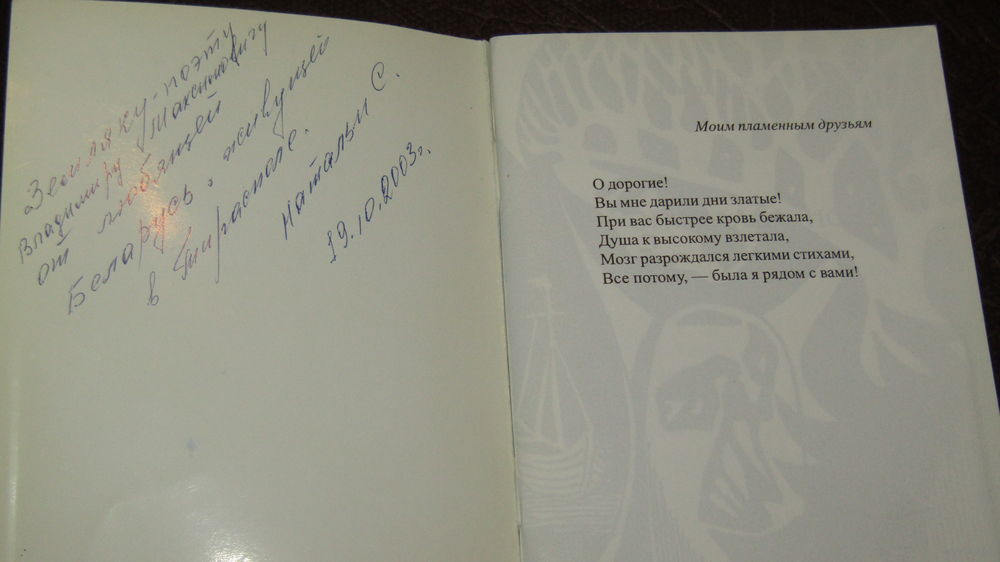 Земляку-поэту
Владимиру Максимовичу
от любящей
Беларусь, живущей
в Тирасполе.
Натальи С.
19.10.2003г.
Моим пламенным друзьям
О дорогие!
Вы мне дарили дни златые!
При вас быстрее кровь бежала,
Душа к высокому взлетала,
Мозг разрождался легкими стихами,
Все потому, — была я рядом с вами!